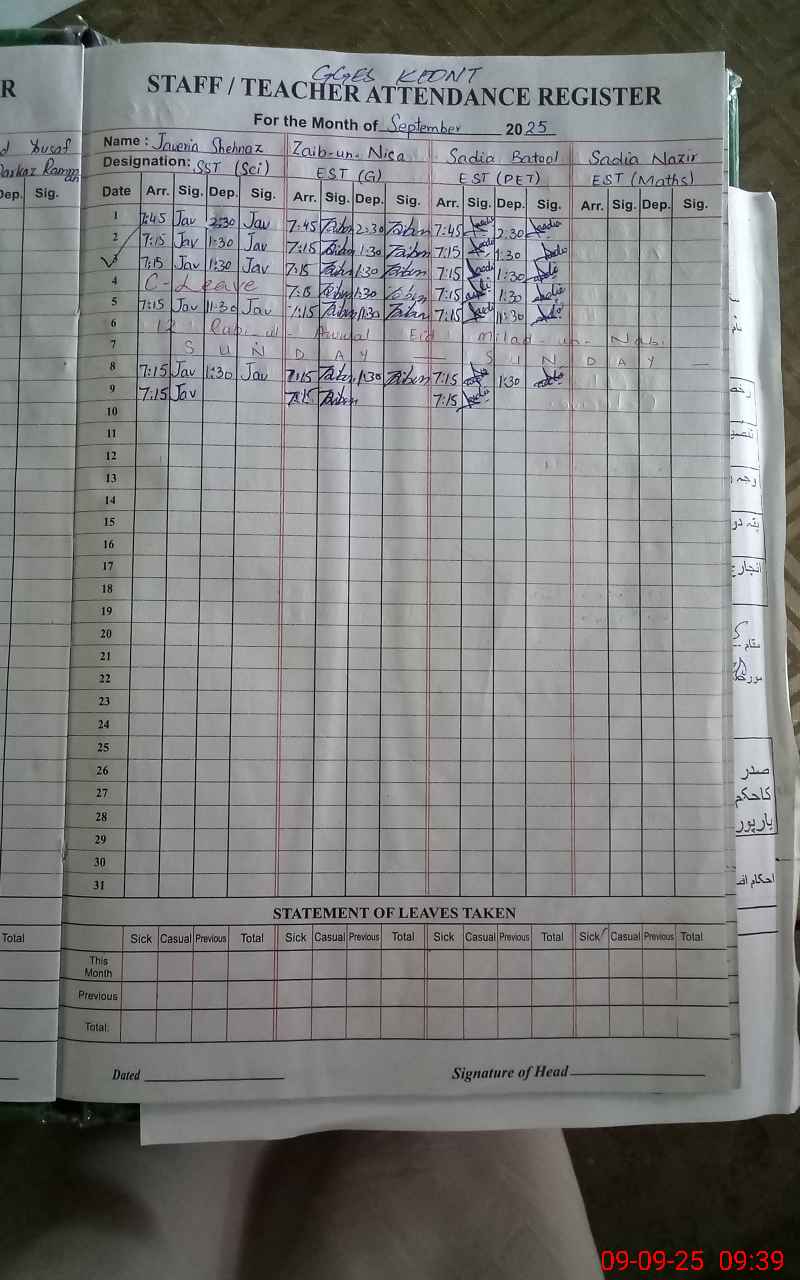 GGES KLONT
STAFF / TEACHER ATTENDANCE REGISTER
For the Month of September 2025
Name : Javeria Shehnaz Zaib-un-Nisa Sadia Batool Sadia Nazir
Designation: SST (Sci) EST (G) EST (PET) EST (Maths)
Date Arr. Sig. Dep. Sig. Arr. Sig. Dep. Sig. Arr. Sig. Dep. Sig. Arr. Sig. Dep. Sig.
1 7:45 Jav 2:30 Jav 7:45 2:30 7:45 2:30
2 7:15 Jav 1:30 Jav 7:15 1:30 7:15 1:30
3 7:15 Jav 1:30 Jav 7:15 1:30 7:15 1:30
4 C-Leave 7:15 1:30 7:15 1:30
5 7:15 Jav 11:30 Jav 7:15 11:30 7:15 11:30
6 12 Rabi-ul-Awwal Eid Milad-un-Nabi
7 S U N D A Y — S U N D A Y —
8 7:15 Jav 1:30 Jav 7:15 1:30 7:15 1:30
9 7:15 Jav 7:15 7:15
10
11
12
13
14
15
16
17
18
19
20
21
22
23
24
25
26
27
28
29
30
31
STATEMENT OF LEAVES TAKEN
Sick Casual Previous Total Sick Casual Previous Total Sick Casual Previous Total Sick Casual Previous Total
This Month
Previous
Total:
Dated
Signature of Head
R
Yusaf
Dep. Sig.
Total
صدر
کا حکم
احکام
09-09-25 09:39